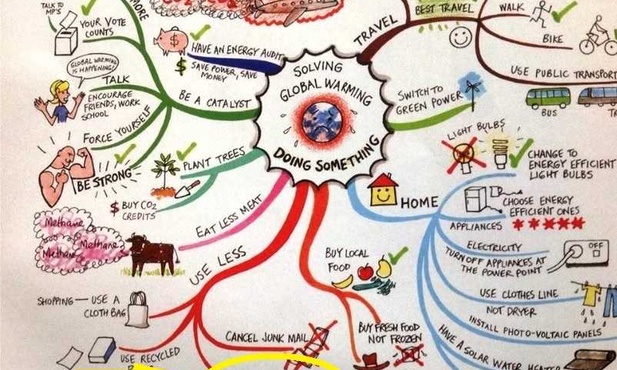 TALK TO
MP'S
YOUR VOTE
COUNTS
MORE
GLOBAL WARMING
IS HAPPENING!
TALK
ENCOURAGE
FRIENDS, WORK
SCHOOL
FORCE YOURSELF
BE STRONG
BE A CATALYST
HAVE AN ENERGY AUDIT
$ SAVE POWER, SAVE
MONEY
SOLVING
GLOBAL WARMING
DOING SOMETHING
TRAVEL
BEST TRAVEL
WALK
BIKE
USE PUBLIC TRANSPORT
BUS
SWITCH TO
GREEN POWER
LIGHT BULBS
CHANGE TO
ENERGY EFFICIENT
LIGHT BULBS
HOME
CHOOSE ENERGY
EFFICIENT ONES
APPLIANCES
ELECTRICITY
TURN OFF APPLIANCES AT
THE POWER POINT
OFF
USE CLOTHES LINE
NOT DRYER
INSTALL PHOTO-VOLTAIC PANELS
HAVE A SOLAR WATER HEATER
PLANT TREES
$ BUY CO2
CREDITS
EAT LESS MEAT
Methane
Methane
Methane
USE LESS
SHOPPING — USE A
CLOTH BAG
CANCEL JUNK MAIL
USE RECYCLED
BUY LOCAL
FOOD
BUY FRESH FOOD
NOT FROZEN